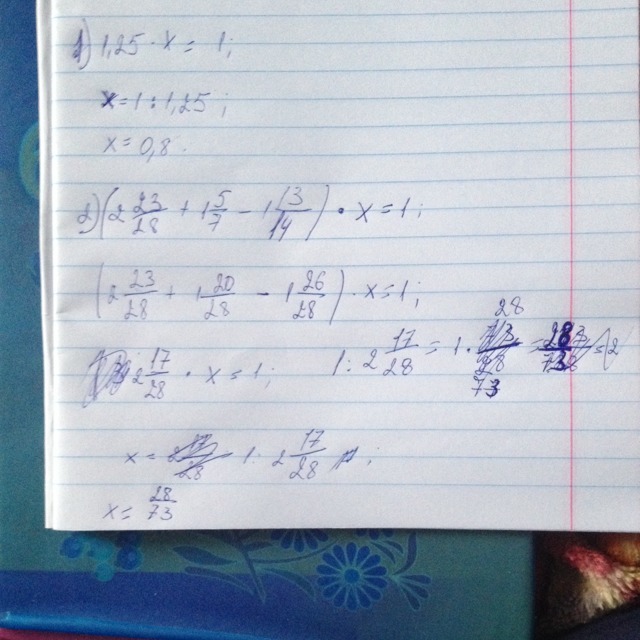 1) 1,25 · x = 1;
x = 1 : 1,25;
x = 0,8.
2) (2 23/28 + 1 5/7 - 1 13/14) · x = 1;
(2 23/28 + 1 20/28 - 1 26/28) · x = 1;
2 17/28 · x = 1; 1 : 2 17/28 = 1 · 28/73 = 28/73
x = 1 : 2 17/28;
x = 28/73